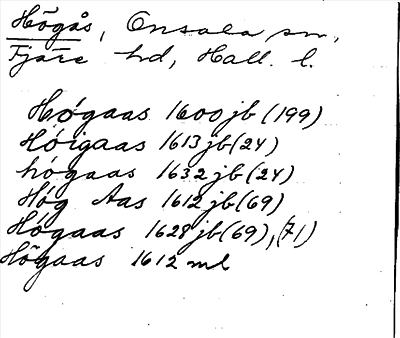 Högås, Onsala sn,
Fjäre hd, Hall. l.
Högaas 1600 jb (199)
Höigaas 1613 jb (24)
högaas 1632 jb (24)
Hög Aas 1612 jb (69)
Högaas 1628 jb (69), (71)
Högaas 1612 ml